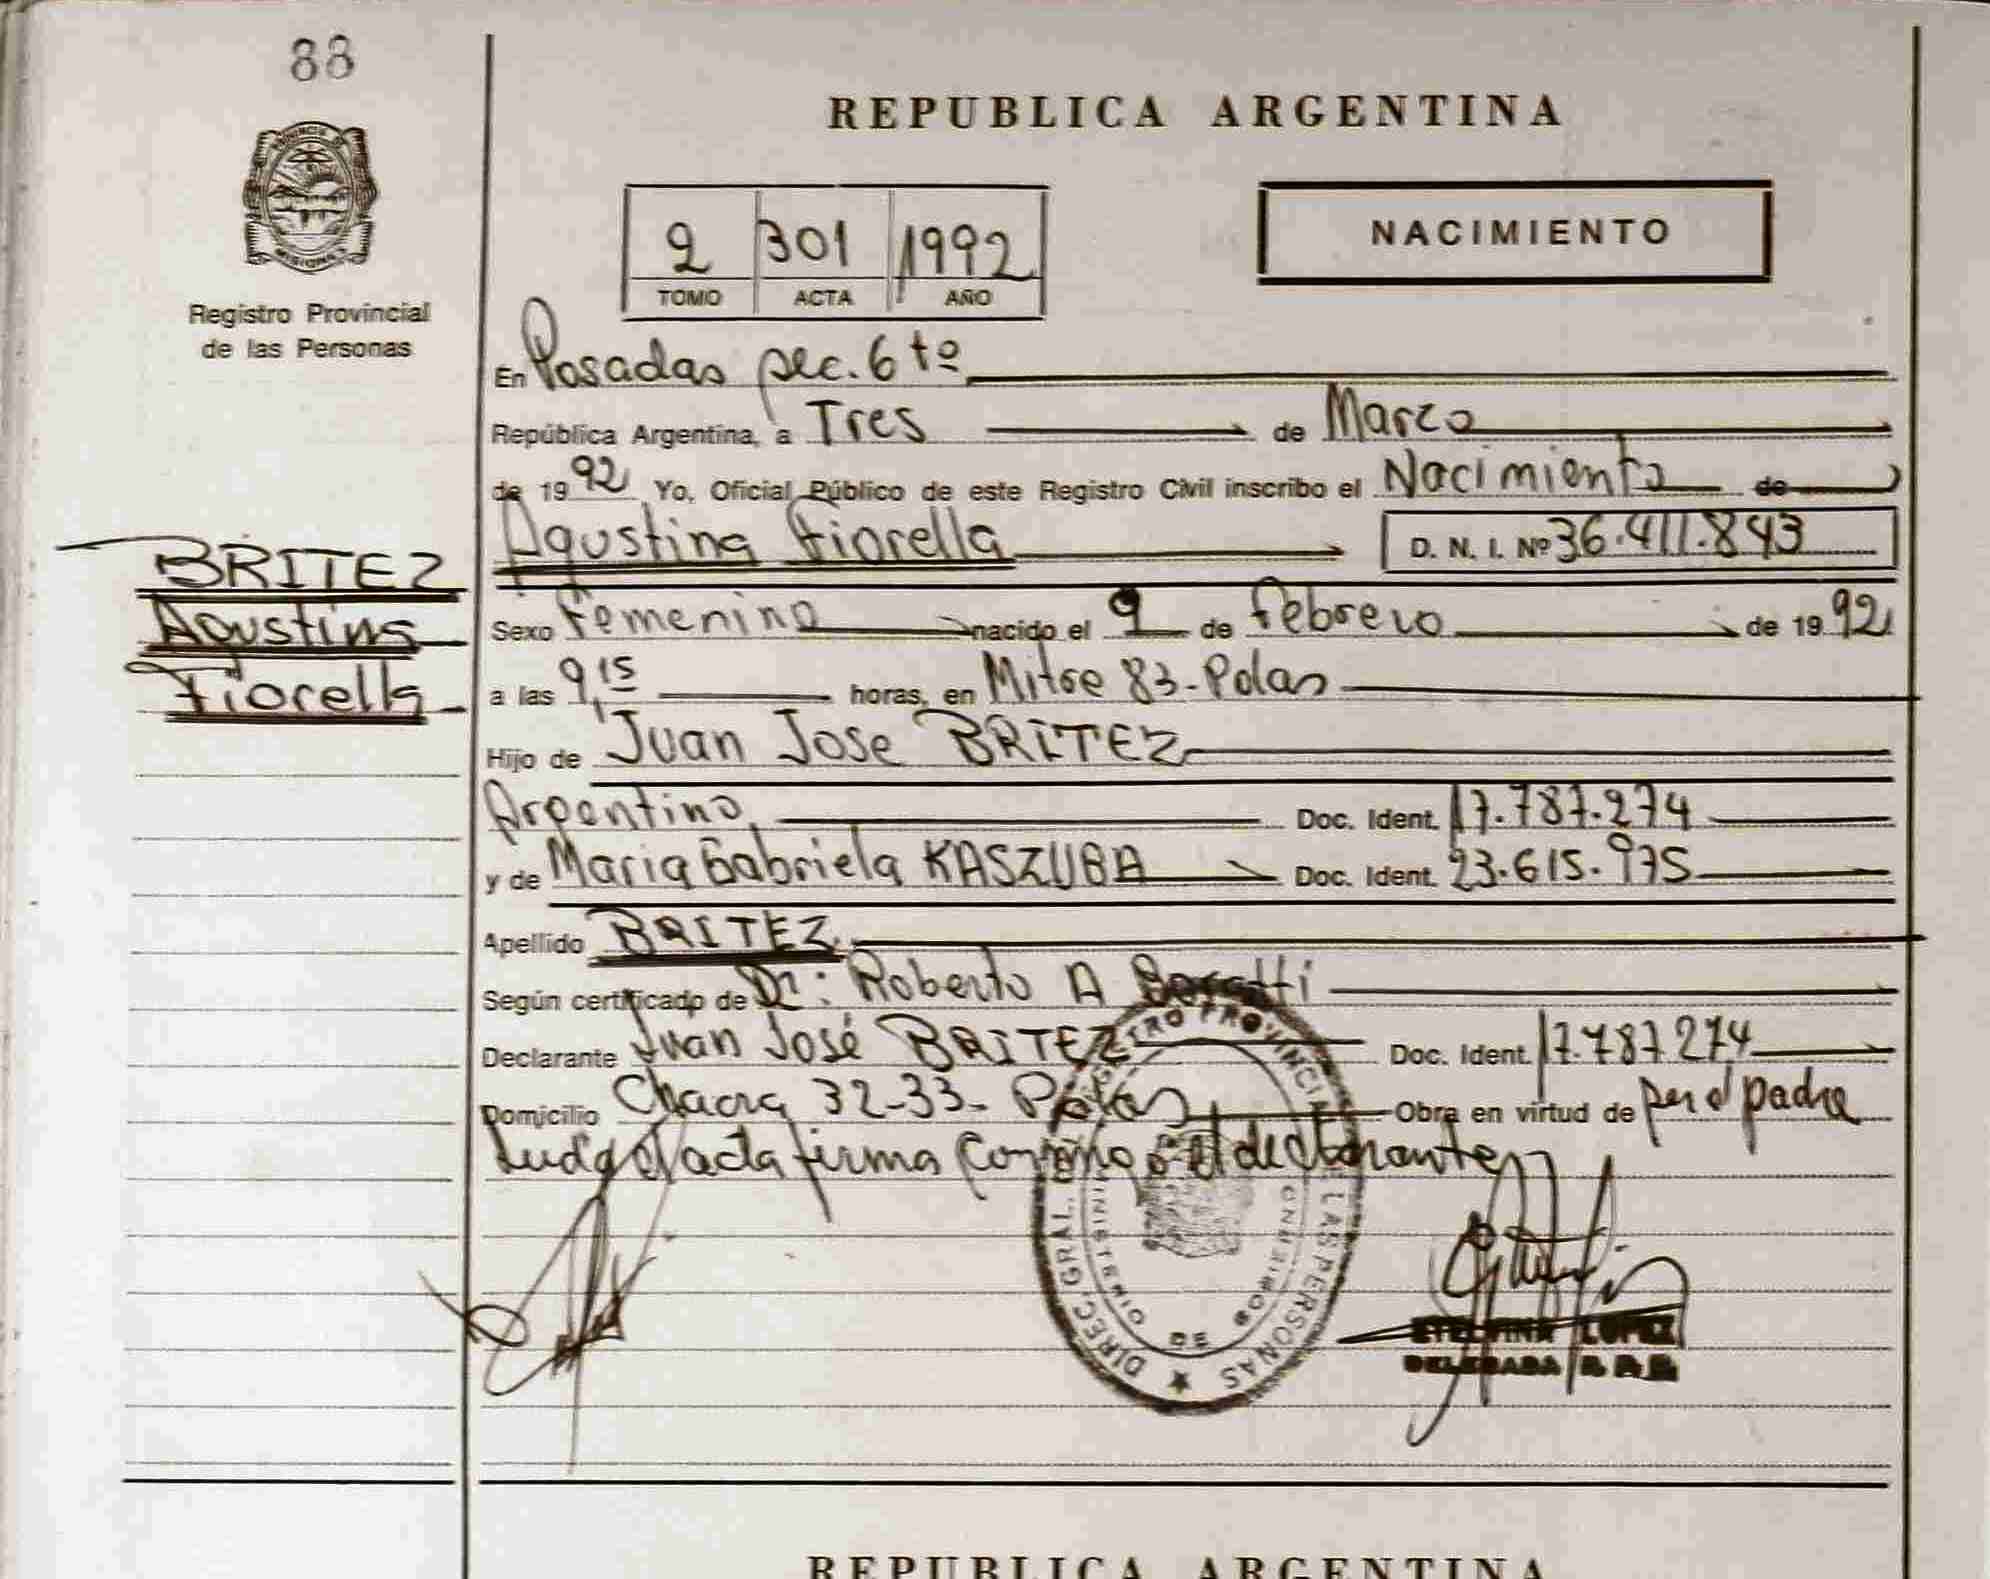 88
REPUBLICA ARGENTINA
PROVINCIA
MISIONES
Registro Provincial
de las Personas
2 301 1992
TOMO ACTA AÑO
NACIMIENTO
En Posadas sec. 6 to
República Argentina, a Tres de Marzo
de 19 92 Yo, Oficial Público de este Registro Civil inscribo el Nacimiento de
Agustina Fiorella D. N. I. Nº 36.411.843
BRITEZ
Agustina
Fiorella
Sexo Femenino nacido el 9 de Febrero de 19 92
a las 9,15 horas, en Mitre 83-Pdas
Hijo de Juan Jose BRITEZ
Argentino Doc. Ident. 17.787.274
y de Maria Gabriela KASZUBA Doc. Ident. 23.615.975
Apellido BRITEZ
Según certificado de Dr: Roberto A
Declarante Juan José BRITEZ Doc. Ident. 17.787.274
Domicilio Chacra 32-33- Pdas Obra en virtud de ser el padre
Leida el acta firma conmigo el declarante
DIREC. GRAL. REGISTRO PROVINCIAL DE LAS PERSONAS
MINISTERIO DE GOBIERNO
ETELVINA LOPEZ
DELEGADA
REPUBLICA ARGENTINA